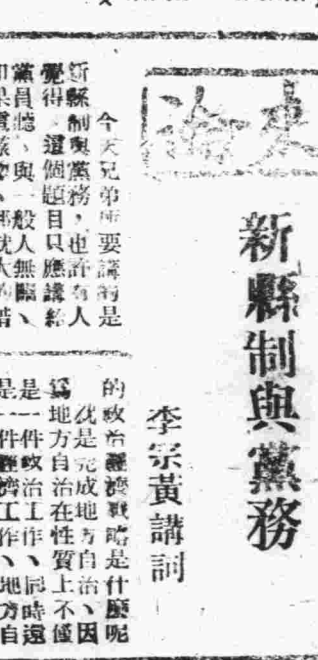 來論
新縣制與黨務
李宗黃講詞
今天兄弟所要講的是
新縣制與黨務，也許有人
覺得、這個題目只應講給
黨員聽、與一般人無關、
的政治經濟戰略是什麼呢
就是完成地方自治、因
爲地方自治在性質上不僅
是一件政治工作、同時還
是一件經濟工作、地方自